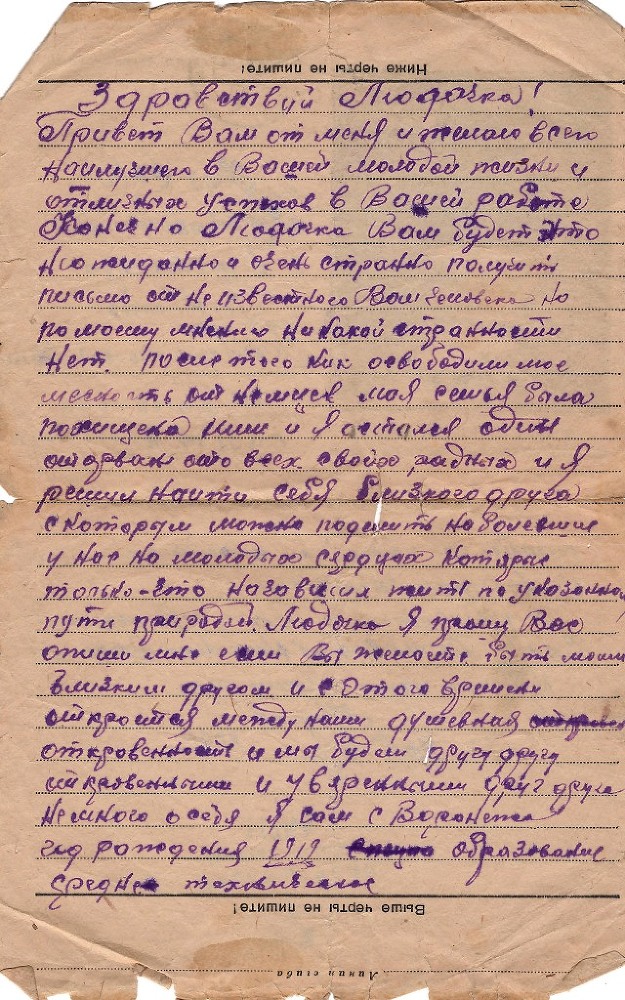 Ниже черты не пишите!
Здравствуй Людочка!
Привет Вам от меня и желаю всего
наилучшего в Вашей молодой жизни и
отличных успехов в Вашей работе
Конечно Людочка Вам будет это
неожиданно и очень странно получить
письмо от неизвестного Вам человека но
по моему мнению никакой странности
нет. после того как освободили мое
местность от немцев моя семья была
похищена ими и я остался один
оторван ото всех своих радных и я
решил найти себя близкого друга
с которым можно поделить наболевшие
у нас на молодых сердцах которые
только-что начавших жить по указанной
пути природой. Людочка я прошу Вас
опиши мне если Вы желаете быть моим
близким другом и с этого времени
откроется между нами душевная
откровенность и мы будем друг другу
откровенными и уверенными друг друга
немного о себя я сам с Воронежа
год рождения 1919 образование
среднее техническое
Выше черты не пишите!
Линия сгиба